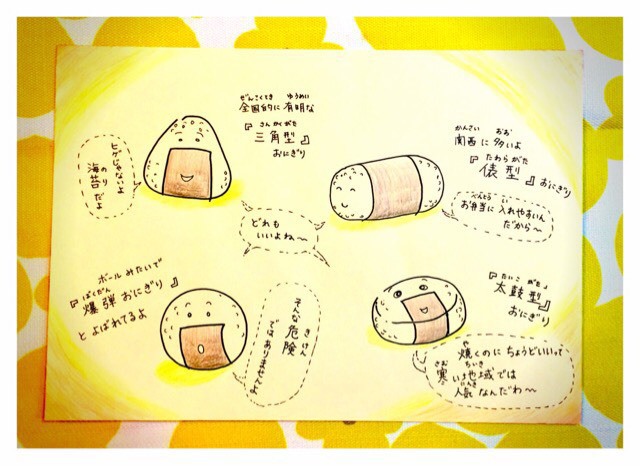 ぜんこくてき ゆうめい
全国的に有明な
さんかくがた
『三角型』
おにぎり
ヒゲじゃないよ
のり
海苔だよ
かんさい おお
関西に多いよ
たわらがた
『俵型』おにぎり
べんとう い
お弁当に入れやすいん
だから〜
どれも
いいよね〜
ボールみたいで
ばくだん
『爆弾おにぎり』
とよばれてるよ
きけん
そんな危険
ではありませんよ
たいこ がた
『太鼓型』
おにぎり
や
焼くのにちょうどいいって
さむ ちいき
寒い地域では
にんき
人気なんだわ〜